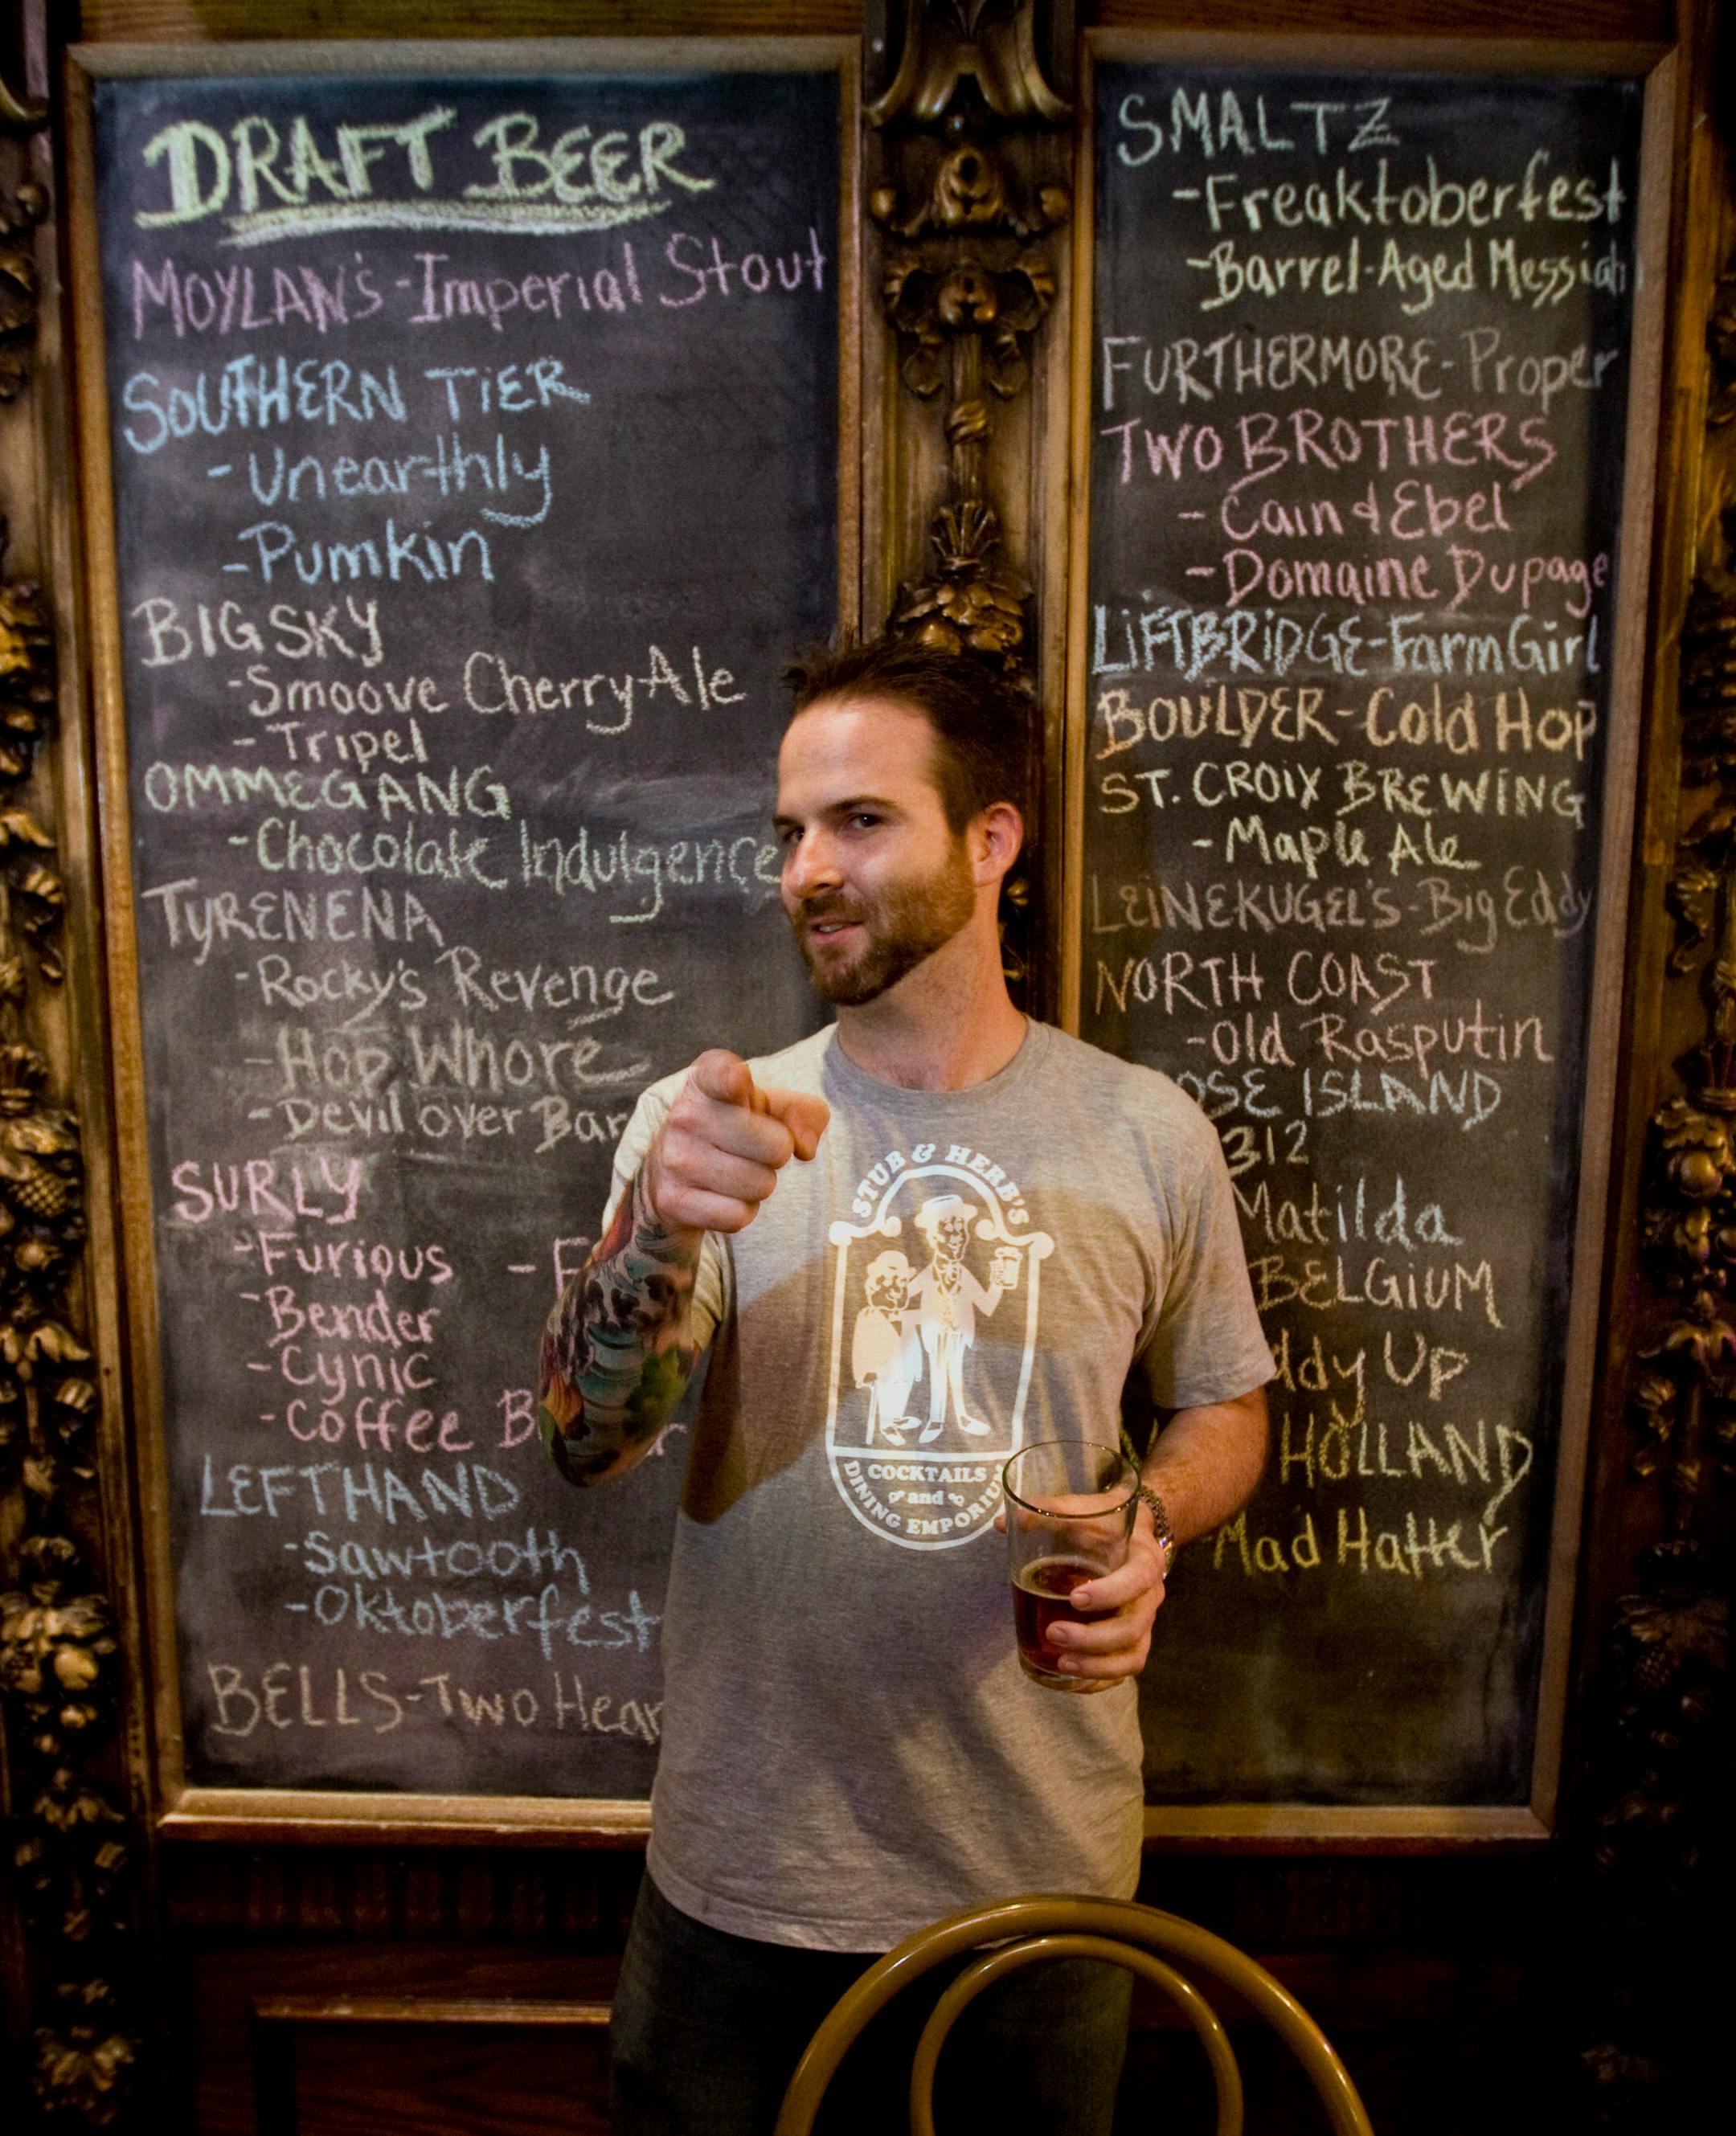 DRAFT BEER
MOYLAN'S-Imperial Stout
SOUTHERN TiER
-Unearthly
-Pumkin
BIG SKY
-Smoove Cherry Ale
-Tripel
OMMEGANG
-Chocolate Indulgence
TYRENENA
-Rocky's Revenge
-Hop Whore
-Devil over Bar
SURLY
-Furious -F
-Bender
-Cynic
-Coffee B r
LEFTHAND
-Sawtooth
-Oktoberfest
BELLS-Two Hear
SMALTZ
-Freaktoberfest
-Barrel-Aged Messiah
FURTHERMORE-Proper
TWO BROTHERS
-Cain & Ebel
-Domaine Dupage
LiFTBRiDGE-Farm Girl
BOULDER-Cold Hop
ST. CROiX BREWiNG
-Maple Ale
LEiNEKUGEL'S-Big Eddy
NORTH COAST
-Old Rasputin
OSE ISLAND
312
Matilda
BELGiUM
ddy Up
HOLLAND
Mad Hatter
STUB & HERB'S
COCKTAILS
and
DINING EMPORIU